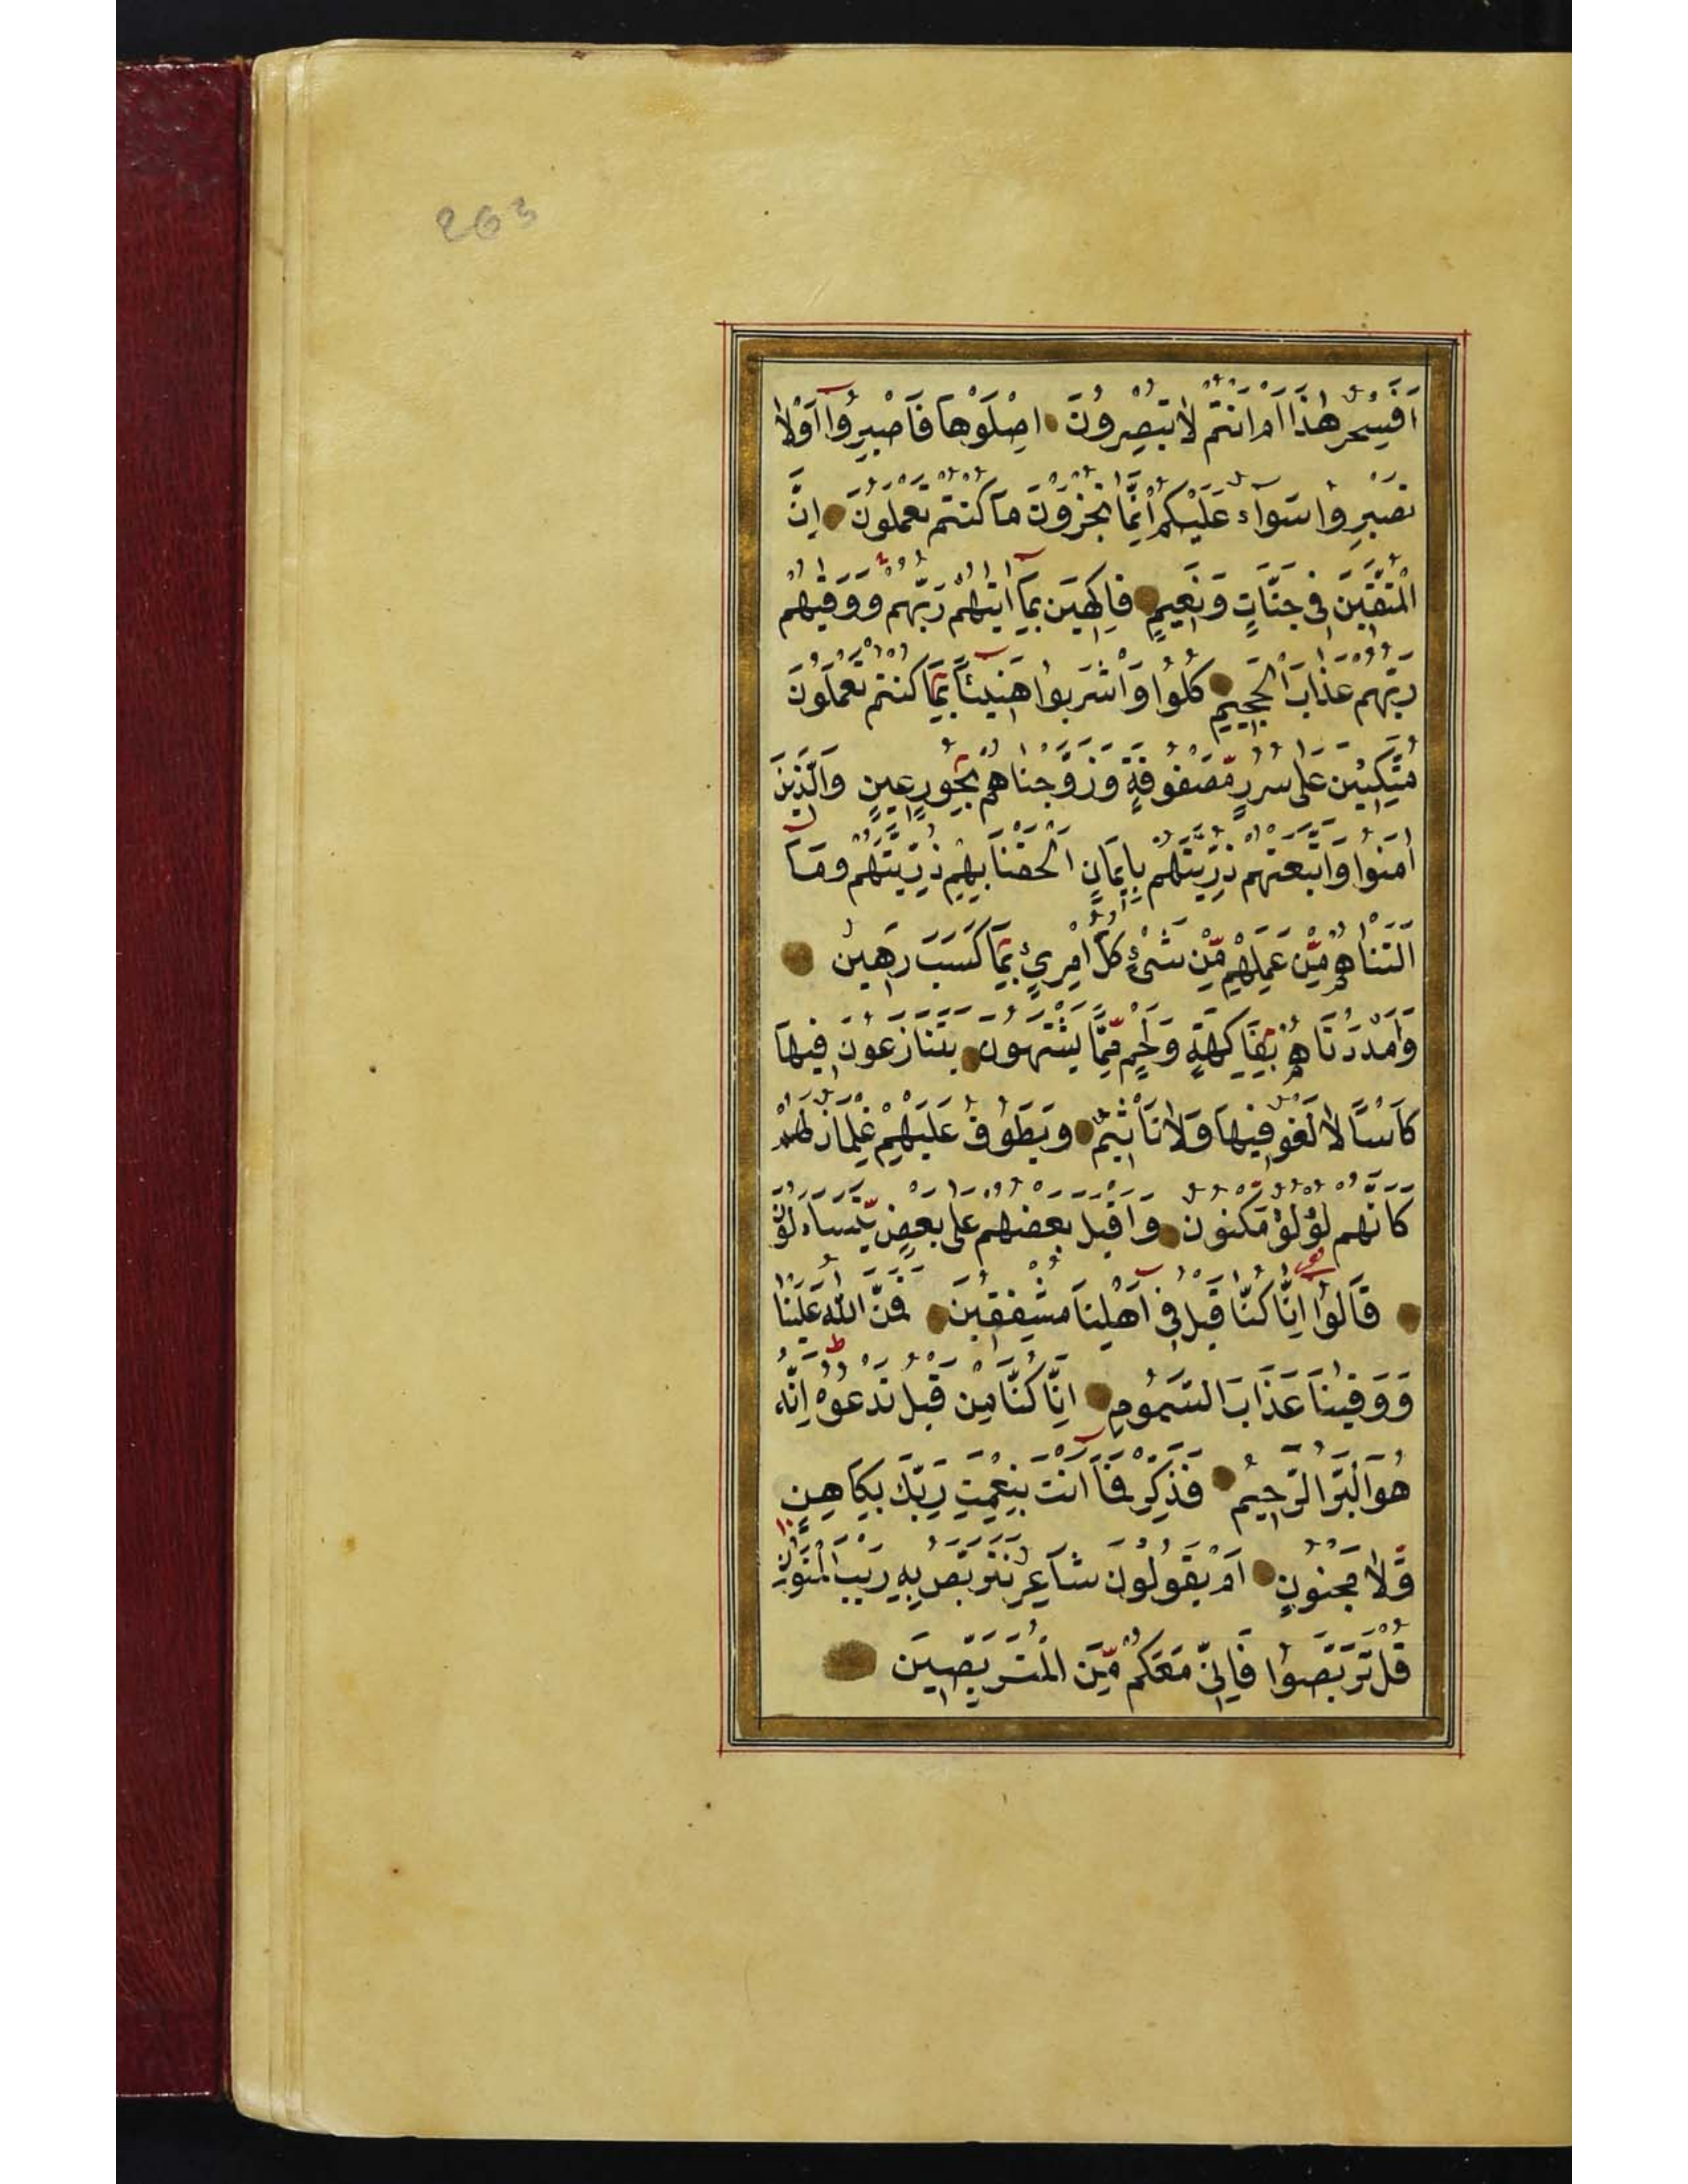 263
اَفَسِحْرٌ هٰذَا اَمْ اَنْتُمْ لَا تُبْصِرُونَ اِصْلَوْهَا فَاصْبِرُوا اَوْ لَا
تَصْبِرُوا سَوَاءٌ عَلَيْكُمْ اِنَّمَا تُجْزَوْنَ مَا كُنْتُمْ تَعْمَلُونَ اِنَّ
الْمُتَّقِينَ فِي جَنَّاتٍ وَنَعِيمٍ فَاكِهِينَ بِمَا اٰتٰيهُمْ رَبُّهُمْ وَوَقٰيهُمْ
رَبُّهُمْ عَذَابَ الْجَحِيمِ كُلُوا وَاشْرَبُوا هَنِيئًا بِمَا كُنْتُمْ تَعْمَلُونَ
مُتَّكِئِينَ عَلٰى سُرُرٍ مَّصْفُوفَةٍ وَزَوَّجْنَاهُمْ بِحُورٍ عِينٍ وَالَّذِينَ
اٰمَنُوا وَاتَّبَعَتْهُمْ ذُرِّيَّتُهُمْ بِاِيمَانٍ اَلْحَقْنَا بِهِمْ ذُرِّيَّتَهُمْ وَمَا
اَلَتْنَاهُمْ مِّنْ عَمَلِهِمْ مِّنْ شَيْءٍ كُلُّ امْرِئٍ بِمَا كَسَبَ رَهِينٌ
وَاَمْدَدْنَاهُمْ بِفَاكِهَةٍ وَلَحْمٍ مِّمَّا يَشْتَهُونَ يَتَنَازَعُونَ فِيهَا
كَأْسًا لَا لَغْوٌ فِيهَا وَلَا تَأْثِيمٌ وَيَطُوفُ عَلَيْهِمْ غِلْمَانٌ لَهُمْ
كَاَنَّهُمْ لُؤْلُؤٌ مَّكْنُونٌ وَاَقْبَلَ بَعْضُهُمْ عَلٰى بَعْضٍ يَّتَسَاءَلُونَ
قَالُوا اِنَّا كُنَّا قَبْلُ فِي اَهْلِنَا مُشْفِقِينَ فَمَنَّ اللّٰهُ عَلَيْنَا
وَوَقٰينَا عَذَابَ السَّمُومِ اِنَّا كُنَّا مِنْ قَبْلُ نَدْعُوهُ اِنَّهُ
هُوَ الْبَرُّ الرَّحِيمُ فَذَكِّرْ فَمَا اَنْتَ بِنِعْمَتِ رَبِّكَ بِكَاهِنٍ
وَّلَا مَجْنُونٍ اَمْ يَقُولُونَ شَاعِرٌ نَتَرَبَّصُ بِهِ رَيْبَ الْمَنُونِ
قُلْ تَرَبَّصُوا فَاِنِّي مَعَكُمْ مِّنَ الْمُتَرَبِّصِينَ